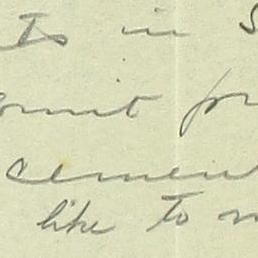 ts in S
ormit for
cement
like to n